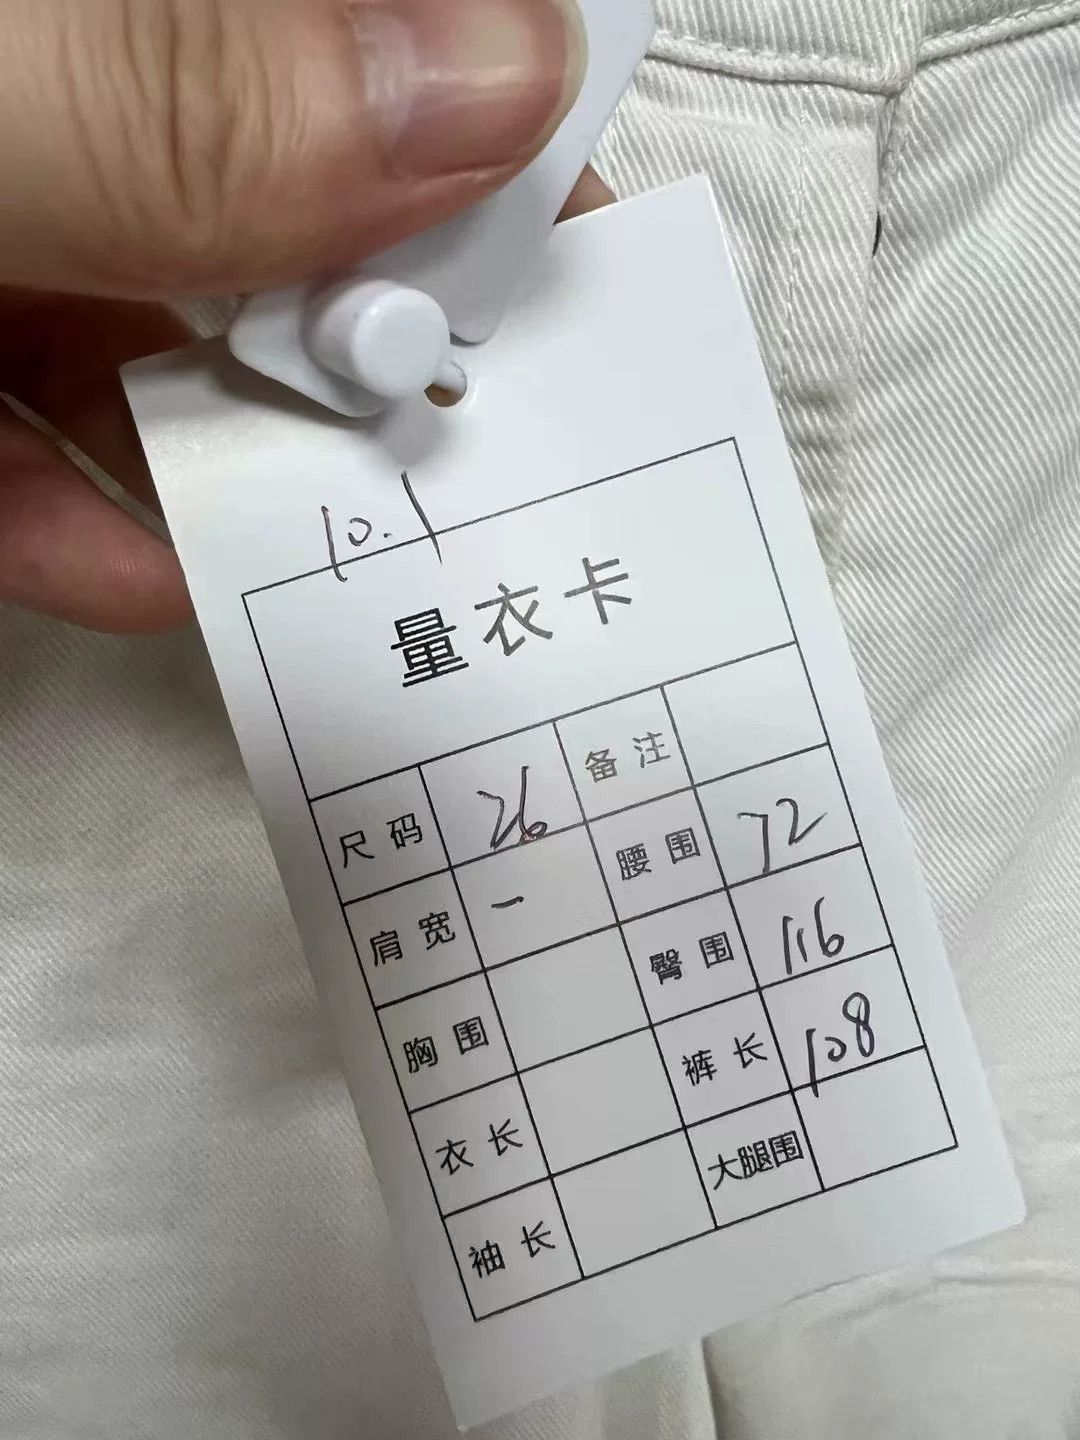 10.1
量衣卡
尺码 26 备注
肩宽 一 腰围 72
胸围 臀围 116
衣长 裤长 108
袖长 大腿围